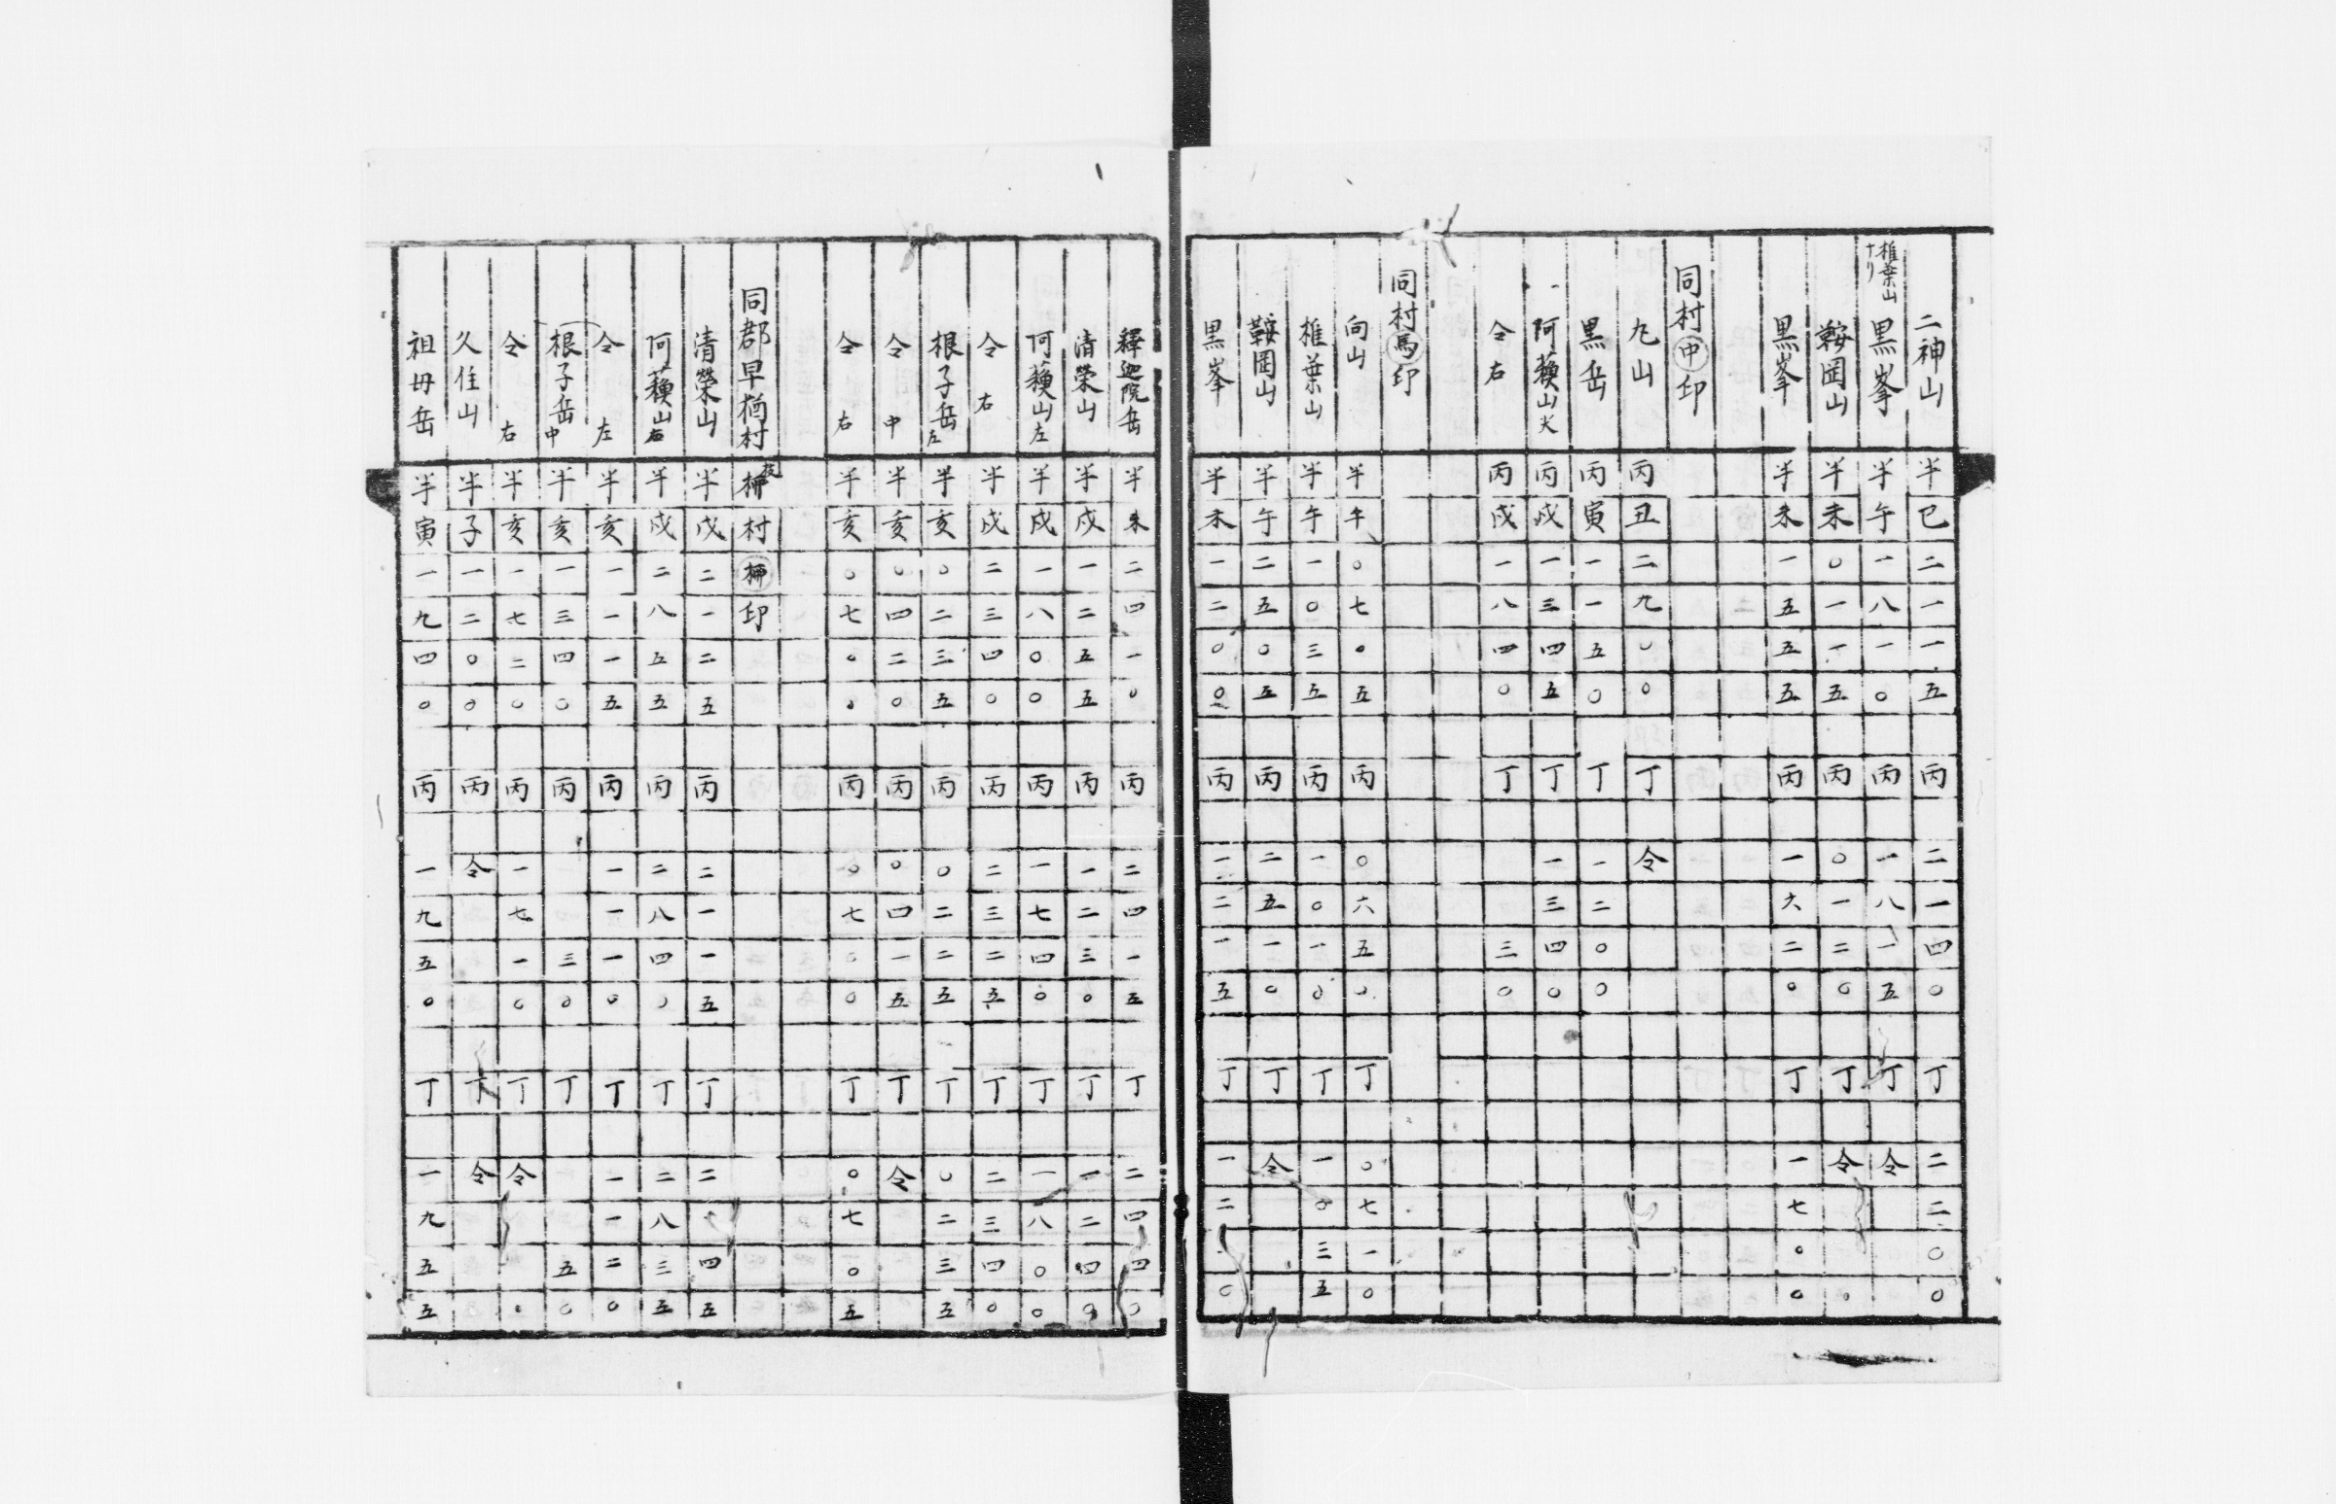 二神山 半巳二一一五 丙二一四〇 丁二二〇〇
椎葉山ナリ 黒峯 半午一八一〇 丙一八一五 丁仝
鞍岡山 半未〇一一五 丙〇一二〇 丁仝
黒峯 半未一五五五 丙一六二〇 丁一七〇〇
同村㊥印
九山 丙丑二九〇〇 丁仝
黒岳 丙寅一一五〇 丁一二〇〇
阿蘓山火 丙戌一三四五 丁一三四〇
仝右 丙戌一八四〇 丁三〇
同村馬印
向山 半午〇七〇五 丙〇六五〇 丁〇七一〇
椎葉山 半午一〇三五 丙一〇一〇 丁一〇三五
鞍岡山 半午二五〇五 丙二五一〇 丁仝
黒峯 半未一二〇〇 丙一二一五 丁一二一〇
釋迦院岳 半未二四一〇 丙二四一五 丁二四四〇
清榮山 半戌一二五五 丙一二三〇 丁一二四〇
阿蘓山左 半戌一八〇〇 丙一七四〇 丁一八〇〇
仝右 半戌二三四〇 丙二三二五 丁二三四〇
根子岳左 半亥〇二三五 丙〇二二五 丁〇二三五
仝中 半亥〇四二〇 丙〇四一五 丁仝
仝右 半亥〇七〇〇 丙〇七〇〇 丁〇七〇五
同郡早楢村 枝柳村 柳印
清榮山 半戌二一二五 丙二一一五 丁二一四五
阿蘓山右 半戌二八五五 丙二八四〇 丁二八三五
仝左 半亥一一一五 丙一一一〇 丁一一二〇
根子岳中 半亥一三四〇 丙三〇 丁五〇
仝右 半亥一七二〇 丙一七一〇 丁仝
久住山 半子一二〇〇 丙仝 丁仝
祖母岳 半寅一九四〇 丙一九五〇 丁一九五五